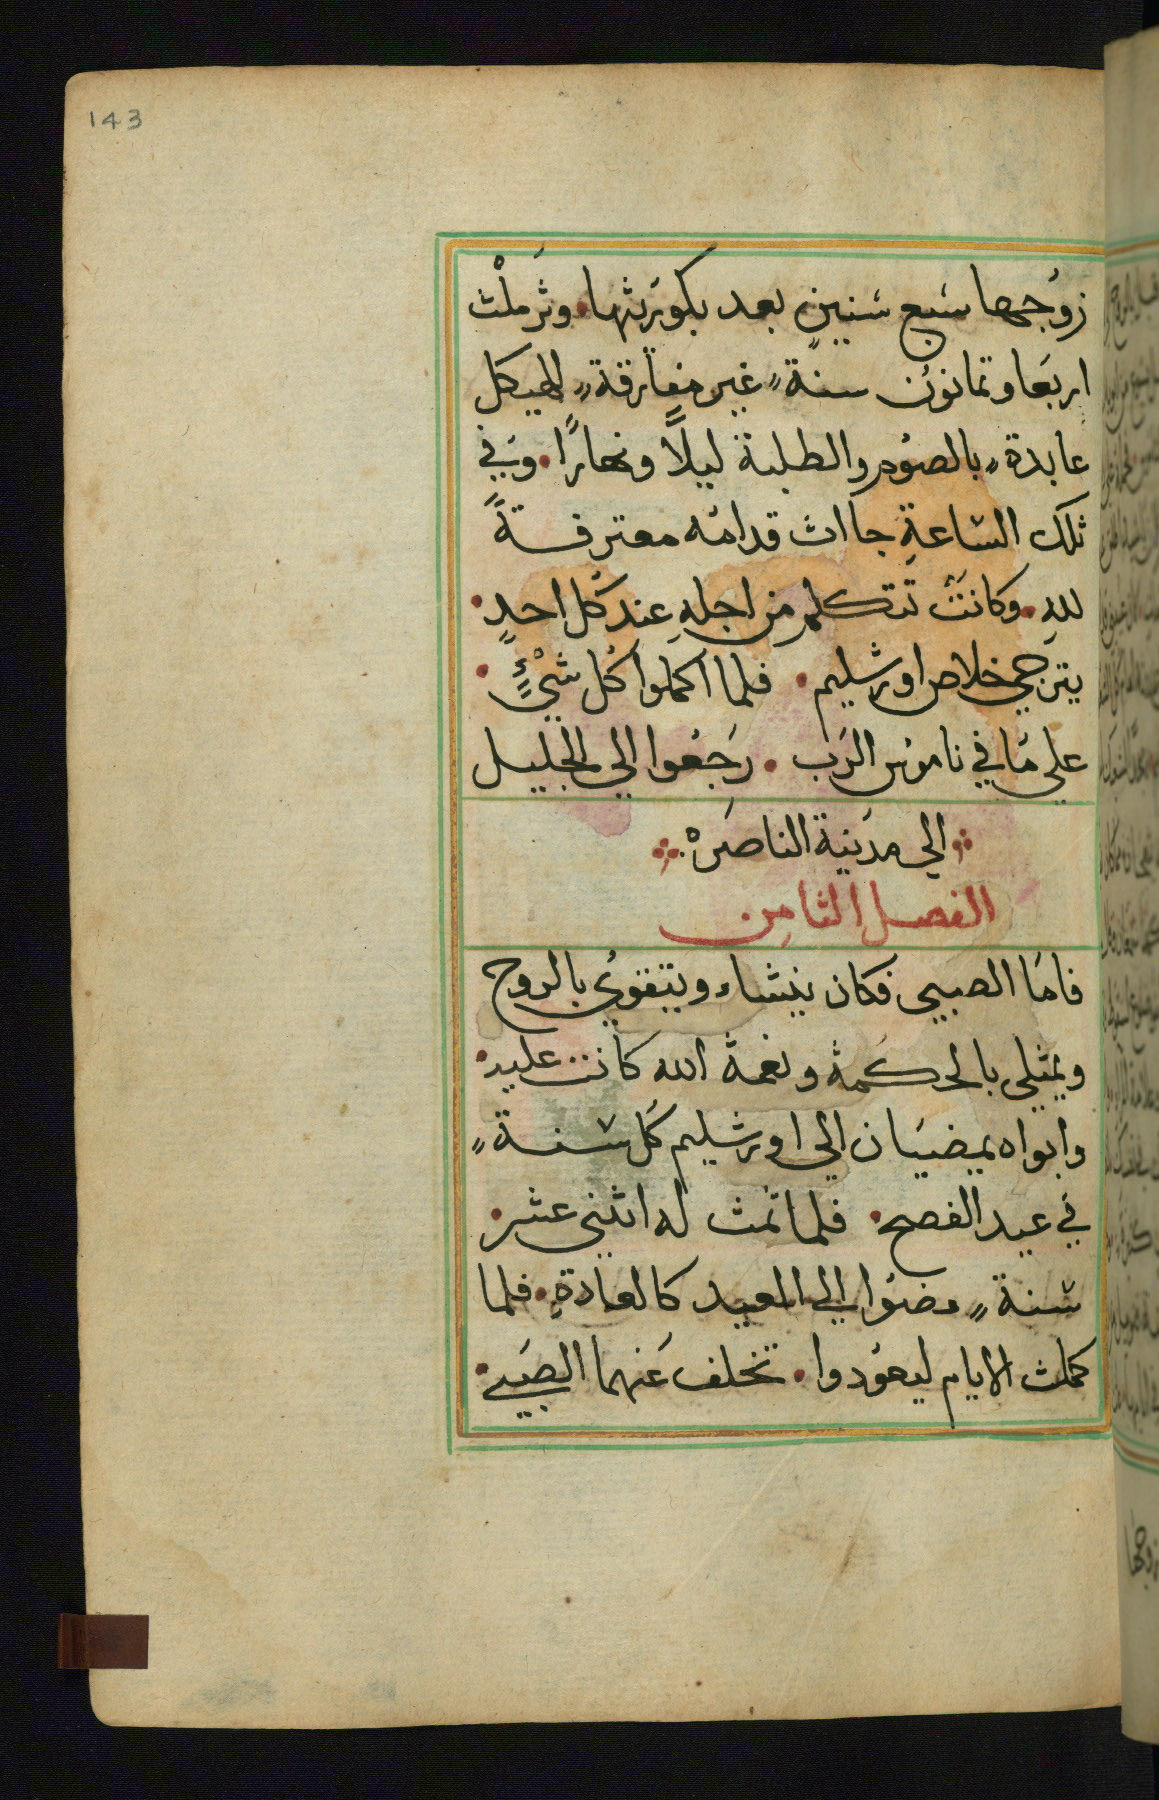 143
زوجها سَبع سَنينٍ بعد بكوريثها. وثرملْث
اربعَا وتمانون سنة غير مفارقة الهيكل
عابدة بالصوم والطلبة ليلاً ونهارًا. وَفي
ثلك السَاعةِ جااث قدامه معترفةً
للهِ. وكانَتْ تتكلم من اجلهِ عند كُل احدٍ.
يترجي خلاص اورشليم. فلما اكملوا كُل شيْءٍ.
علي مَا في ناموس الرَب. رَجَعوا الي الجليل
الي مدَينة الناصَره
الفصل الثامِن
فامَا الصبيي فكان ينشاء ويتقوي بالروح
ويمثلي بالحكَمة ونعمة الله كانت عليه.
وابواه يمضيَان الي اورشليم كُل سَنة
في عيد الفصح. فلما تمث له اثني عشر.
سَنة مضوا الي العيد كالعادةِ. فلما
كملث الايام ليعوُدوا. تخلف عَنهما الصَبي.
زوجها